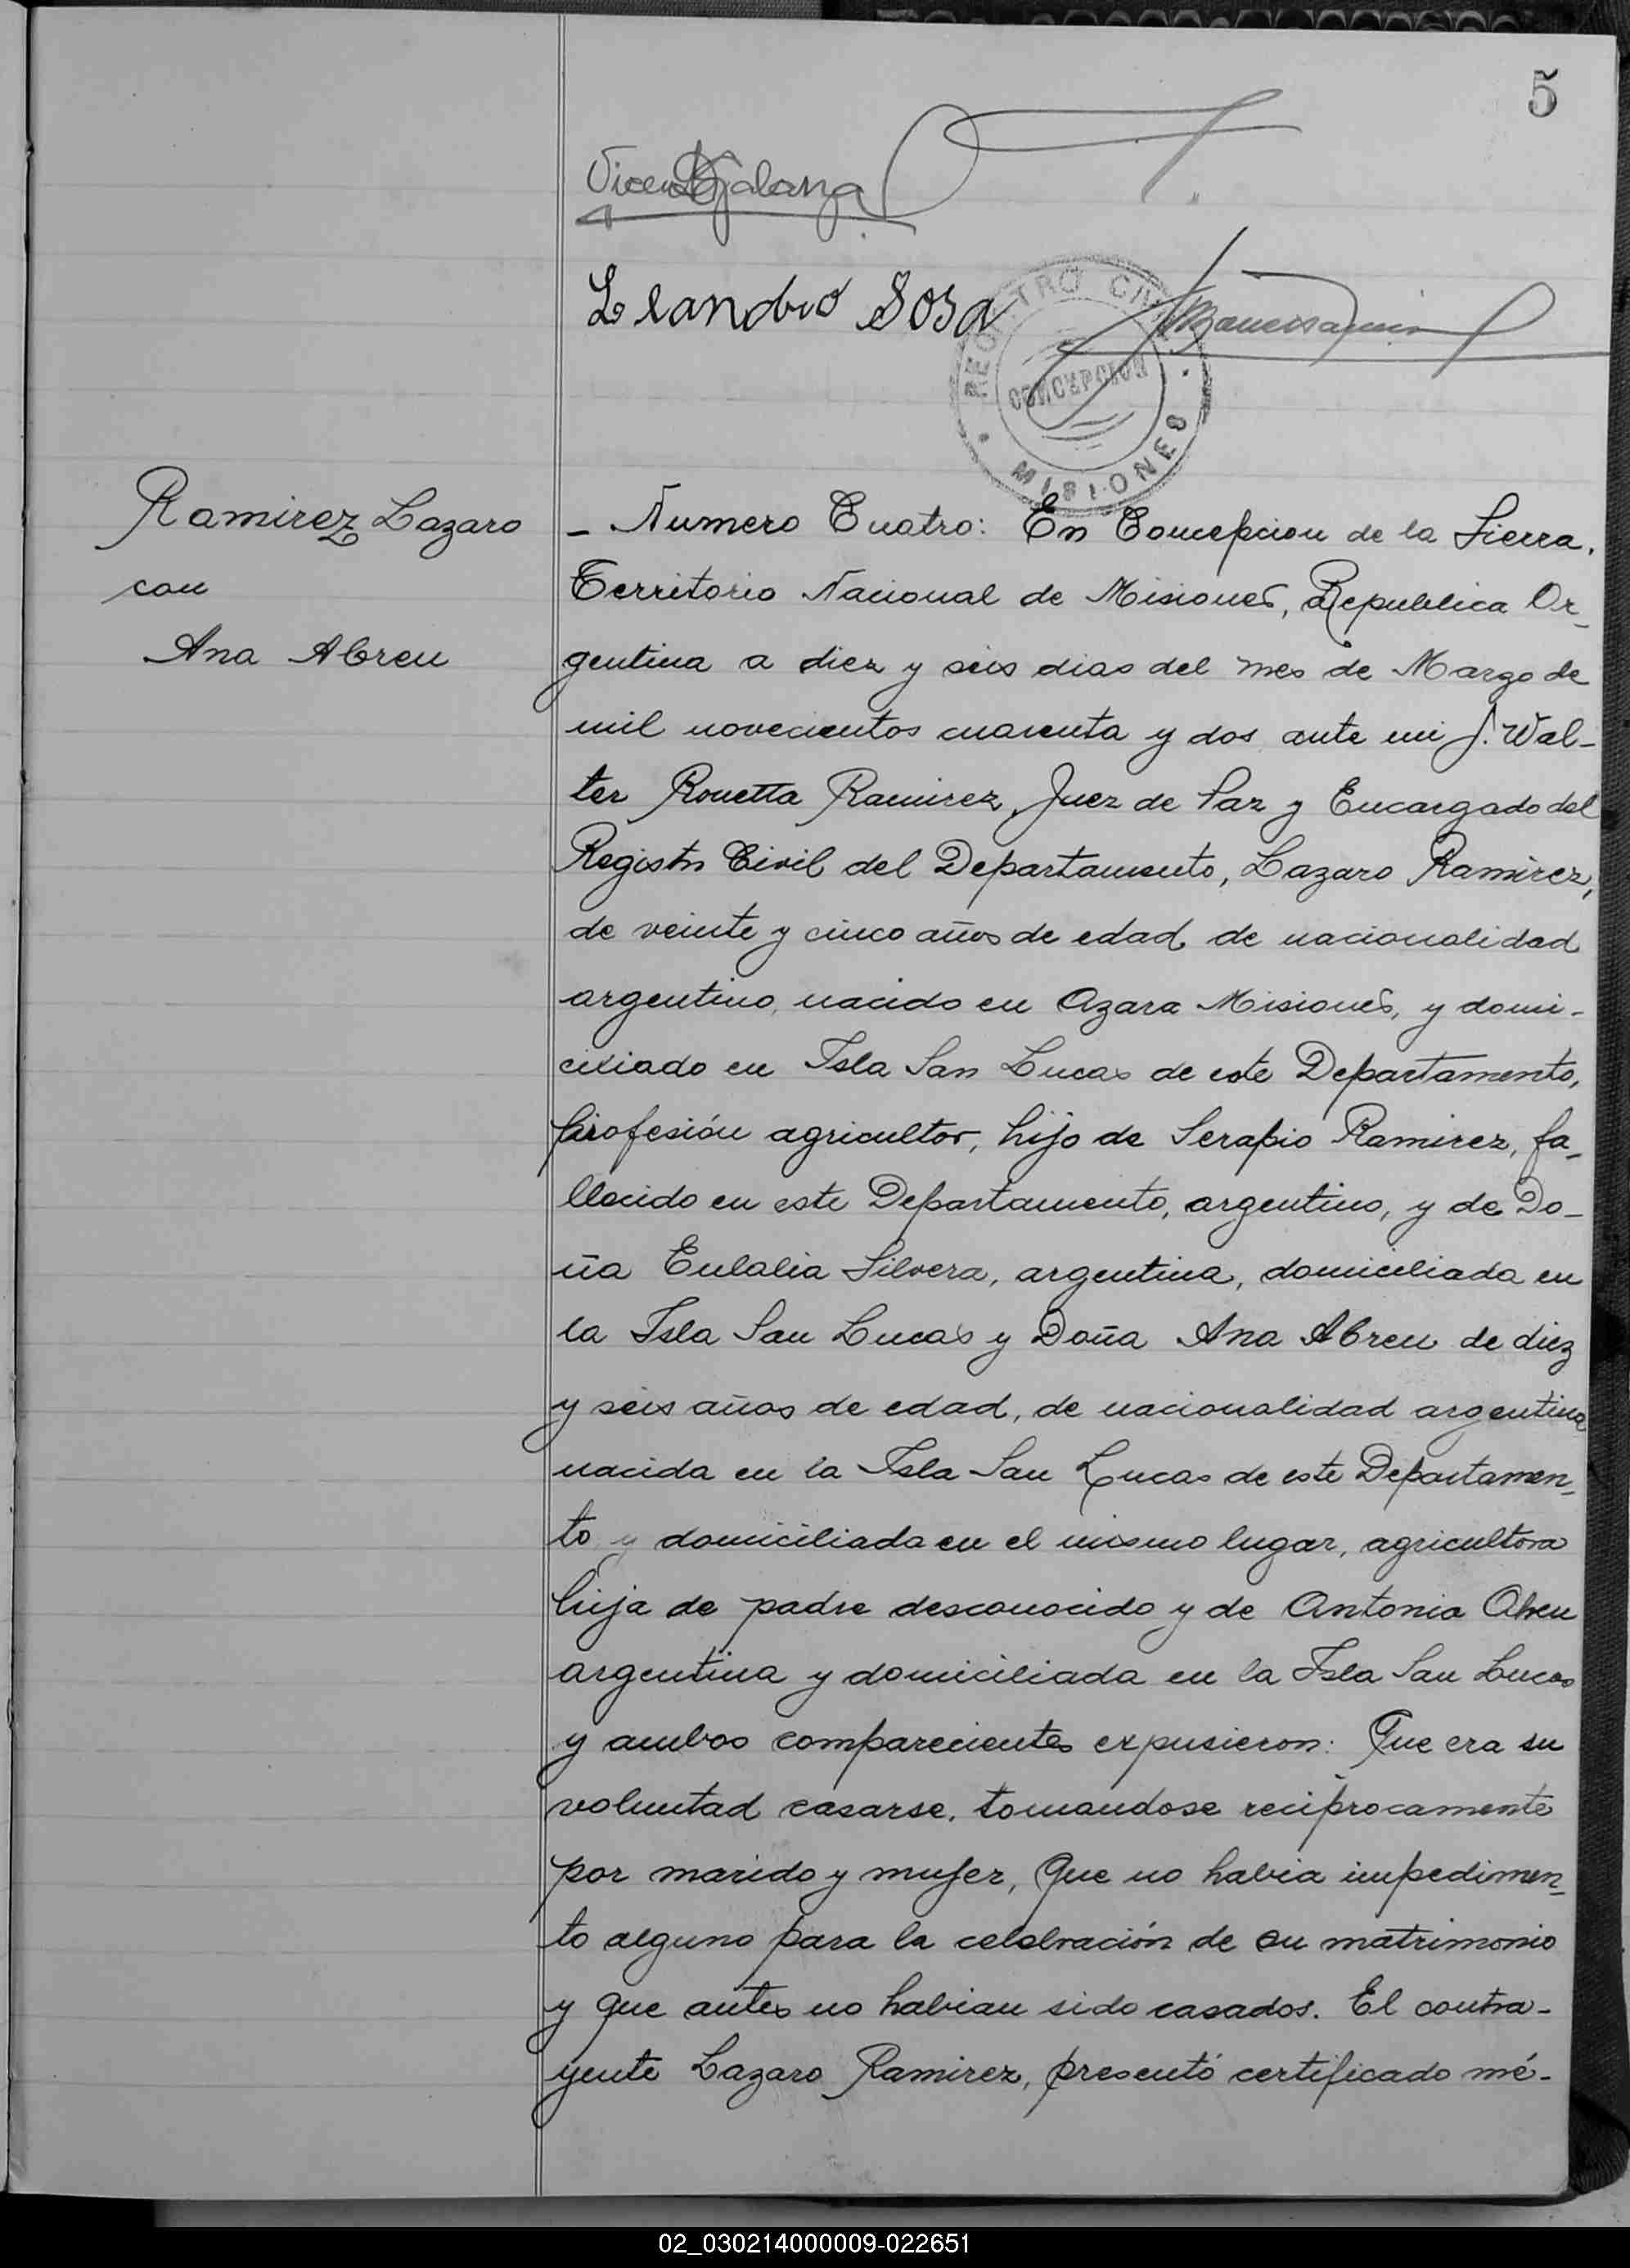 5
Leandro Sosa
REGISTRO CIVIL
CONCEPCION
MISIONES
Ramirez Lazaro
con
Ana Abreu
- Numero Cuatro: En Concepcion de la Sierra,
Territorio Nacional de Misiones, Republica Ar-
gentina a diez y seis dias del mes de Marzo de
mil novecientos cuarenta y dos, ante mi J. Wal-
ter Rouetta Ramirez, Juez de Paz y Encargado del
Registro Civil del Departamento, Lazaro Ramirez,
de veinte y cinco años de edad, de nacionalidad
argentino, nacido en Azara Misiones, y domi-
ciliado en Isla San Lucas de este Departamento,
profesión agricultor, hijo de Serapio Ramirez, fa-
llecido en este Departamento, argentino, y de Do-
ña Eulalia Silvera, argentina, domiciliada en
la Isla San Lucas y Doña Ana Abreu de diez
y seis años de edad, de nacionalidad argentina
nacida en la Isla San Lucas de este Departamen-
to y domiciliada en el mismo lugar, agricultora
hija de padre desconocido y de Antonia Abreu
argentina y domiciliada en la Isla San Lucas
y ambos comparecientes expusieron: Que era su
voluntad casarse, tomandose reciprocamente
por marido y mujer, Que no habia impedimen-
to alguno para la celebración de su matrimonio
y que antes no habian sido casados. El contra-
yente Lazaro Ramirez, presentó certificado mé-
02_030214000009-022651